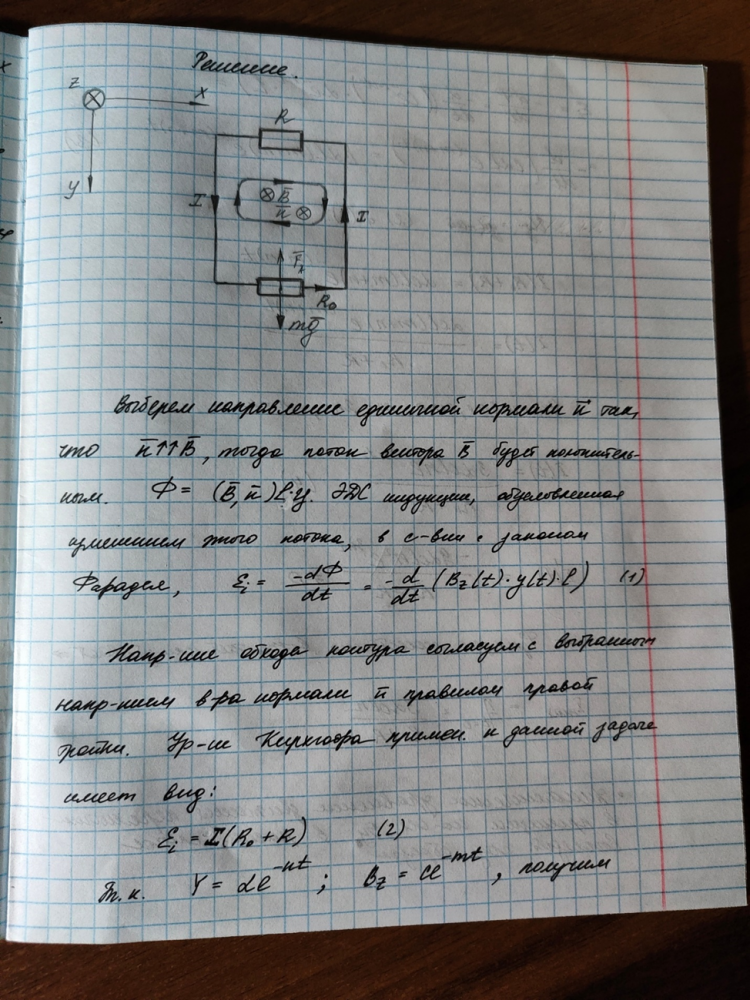 Решение.
z
x
y
R
I
B̅
n̅
I
F̅
R₀
mg̅
Выберем направление единичной нормали n̅ так,
что n̅↑↑B̅, тогда поток вектора B̅ будет положитель-
ным. Ф = (B̅, n̅)ℓ·y. ЭДС индукции, обусловленная
изменением этого потока, в с-вии с законом
Фарадея, Ɛi = -dФ/dt = -d/dt (Bz(t)·y(t)·ℓ) (1)
Напр-ние обхода контура согласуем с выбранным
напр-нием в-ра нормали n̅ правилом правой
тройки. Ур-ие Кирхгофа примен. к данной задаче
имеет вид:
Ɛi = I(R₀ + R) (2)
Т.к. Y = de^{-nt}; Bz = ce^{-mt}, получим